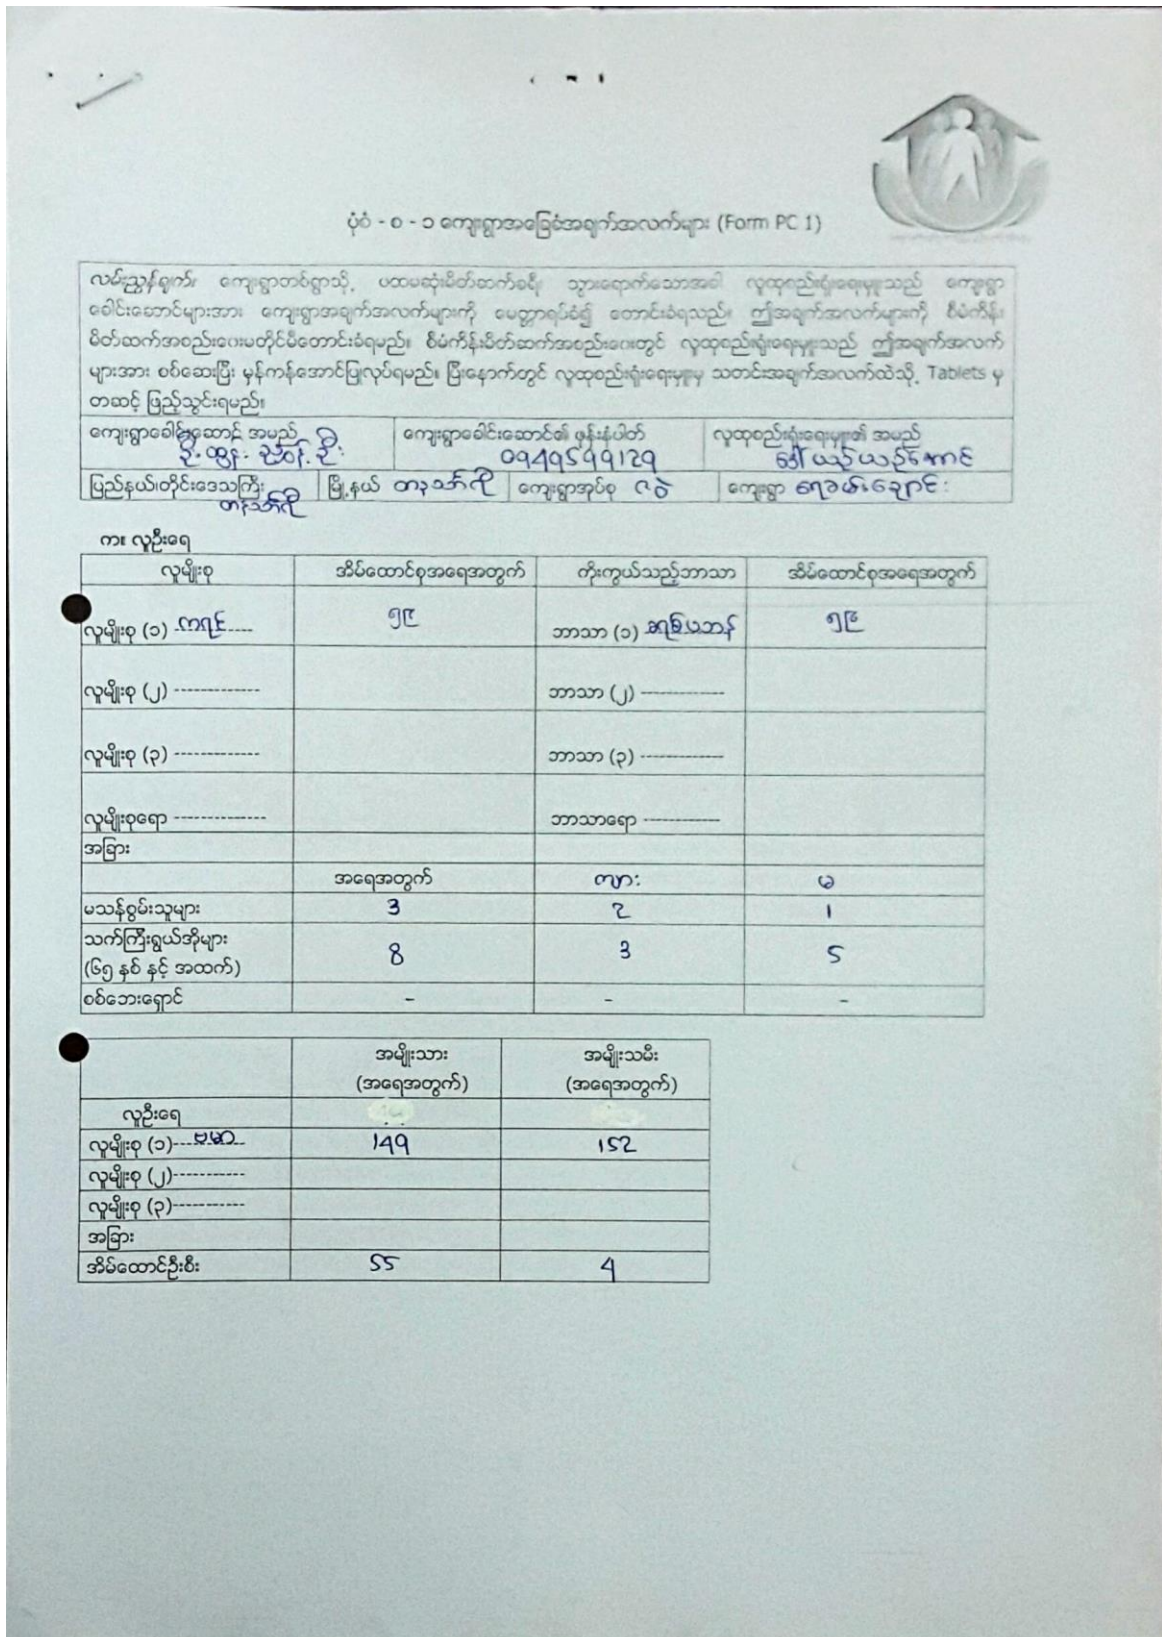 ပုံစံ - စ - ၁ ကျေးရွာအခြေခံအချက်အလက်များ (Form PC 1)
လမ်းညွှန်ချက်။ ကျေးရွာတစ်ရွာသို့ ပထမဆုံးမိတ်ဆက်ခရီး သွားရောက်သောအခါ လူထုစည်းရုံးရေးမှူးသည် ကျေးရွာ
ခေါင်းဆောင်များအား ကျေးရွာအချက်အလက်များကို မေတ္တာရပ်ခံ၍ တောင်းခံရသည်။ ဤအချက်အလက်များကို စီမံကိန်း
မိတ်ဆက်အစည်းဝေးမတိုင်မီတောင်းခံရမည်။ စီမံကိန်းမိတ်ဆက်အစည်းဝေးတွင် လူထုစည်းရုံးရေးမှူးသည် ဤအချက်အလက်
များအား စစ်ဆေးပြီး မှန်ကန်အောင်ပြုလုပ်ရမည်။ ပြီးနောက်တွင် လူထုစည်းရုံးရေးမှူးမှ သတင်းအချက်အလက်ထဲသို့ Tablets မှ
တဆင့် ဖြည့်သွင်းရမည်။
ကျေးရွာခေါင်းဆောင် အမည် ကျေးရွာခေါင်းဆောင်၏ ဖုန်းနံပါတ် လူထုစည်းရုံးရေးမှူး၏ အမည်
ဦးထွန်းညွန့်ဦး 0949599129
ပြည်နယ်၊တိုင်းဒေသကြီး မြို့နယ် တနင်္သာရီ ကျေးရွာအုပ်စု ကျေးရွာ ရေခမ်းချောင်း
တနင်္သာရီ
က။ လူဦးရေ
လူမျိုးစု အိမ်ထောင်စုအရေအတွက် ကိုးကွယ်သည့်ဘာသာ အိမ်ထောင်စုအရေအတွက်
လူမျိုးစု (၁) ကရင် ၅၉ ဘာသာ (၁) ခရစ်ယာန် ၅၉
လူမျိုးစု (၂) ------------- ဘာသာ (၂) -------------
လူမျိုးစု (၃) ------------- ဘာသာ (၃) -------------
လူမျိုးစုရော -------------- ဘာသာရော ------------
အခြား
အရေအတွက် ကျား မ
မသန်စွမ်းသူများ 3 2 1
သက်ကြီးရွယ်အိုများ
(၆၅ နှစ် နှင့် အထက်) 8 3 5
စစ်ဘေးရှောင် - - -
အမျိုးသား အမျိုးသမီး
(အရေအတွက်) (အရေအတွက်)
လူဦးရေ
လူမျိုးစု (၁) ဗမာ 149 152
လူမျိုးစု (၂)-----------
လူမျိုးစု (၃)-----------
အခြား
အိမ်ထောင်ဦးစီး 55 4